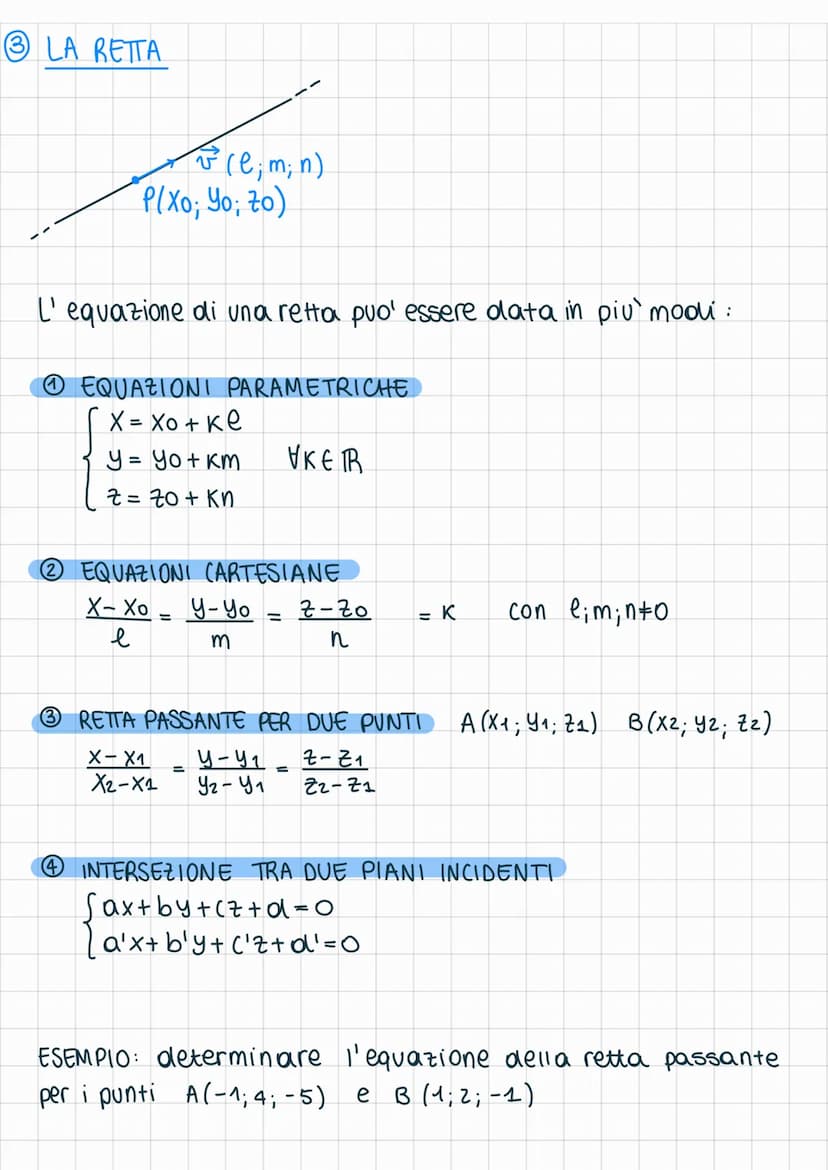 ③ LA RETTA
v⃗ (l; m; n)
P(x0; y0; z0)
L' equazione di una retta puo' essere data in piu` modi :
① EQUAZIONI PARAMETRICHE
{ x = x0 + kl
y = y0 + km ∀k∈ℝ
z = z0 + kn
② EQUAZIONI CARTESIANE
(x-x0)/l = (y-y0)/m = (z-z0)/n = k con l;m;n≠0
③ RETTA PASSANTE PER DUE PUNTI A(x1; y1; z1) B(x2; y2; z2)
(x-x1)/(x2-x1) = (y-y1)/(y2-y1) = (z-z1)/(z2-z1)
④ INTERSEZIONE TRA DUE PIANI INCIDENTI
{ ax+by+cz+d=0
a'x+b'y+c'z+d'=0
ESEMPIO: determinare l'equazione della retta passante
per i punti A(-1; 4; -5) e B (1; 2; -1)